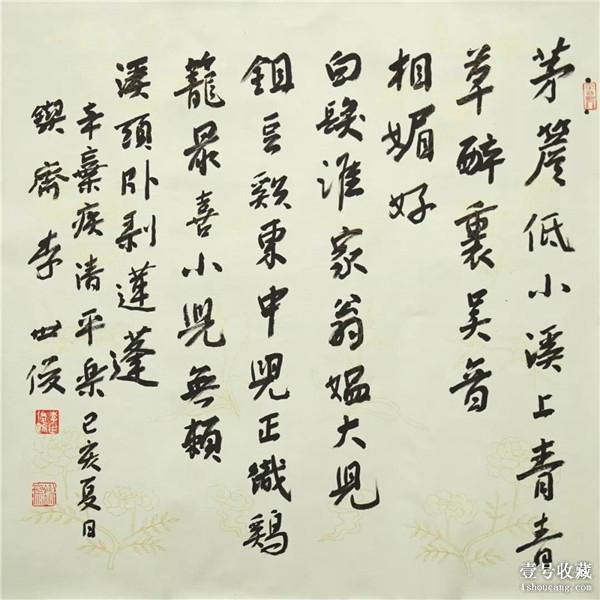 茅簷低小溪上青青
草醉裏吴音
相媚好
白髮誰家翁媪大兒
鉏豆谿東中兒正織鷄
籠最喜小兒無賴
溪頭卧剥蓮蓬
辛棄疾清平楽己亥夏日
鍥齋李世俊
壹号收藏
1shoucang.com